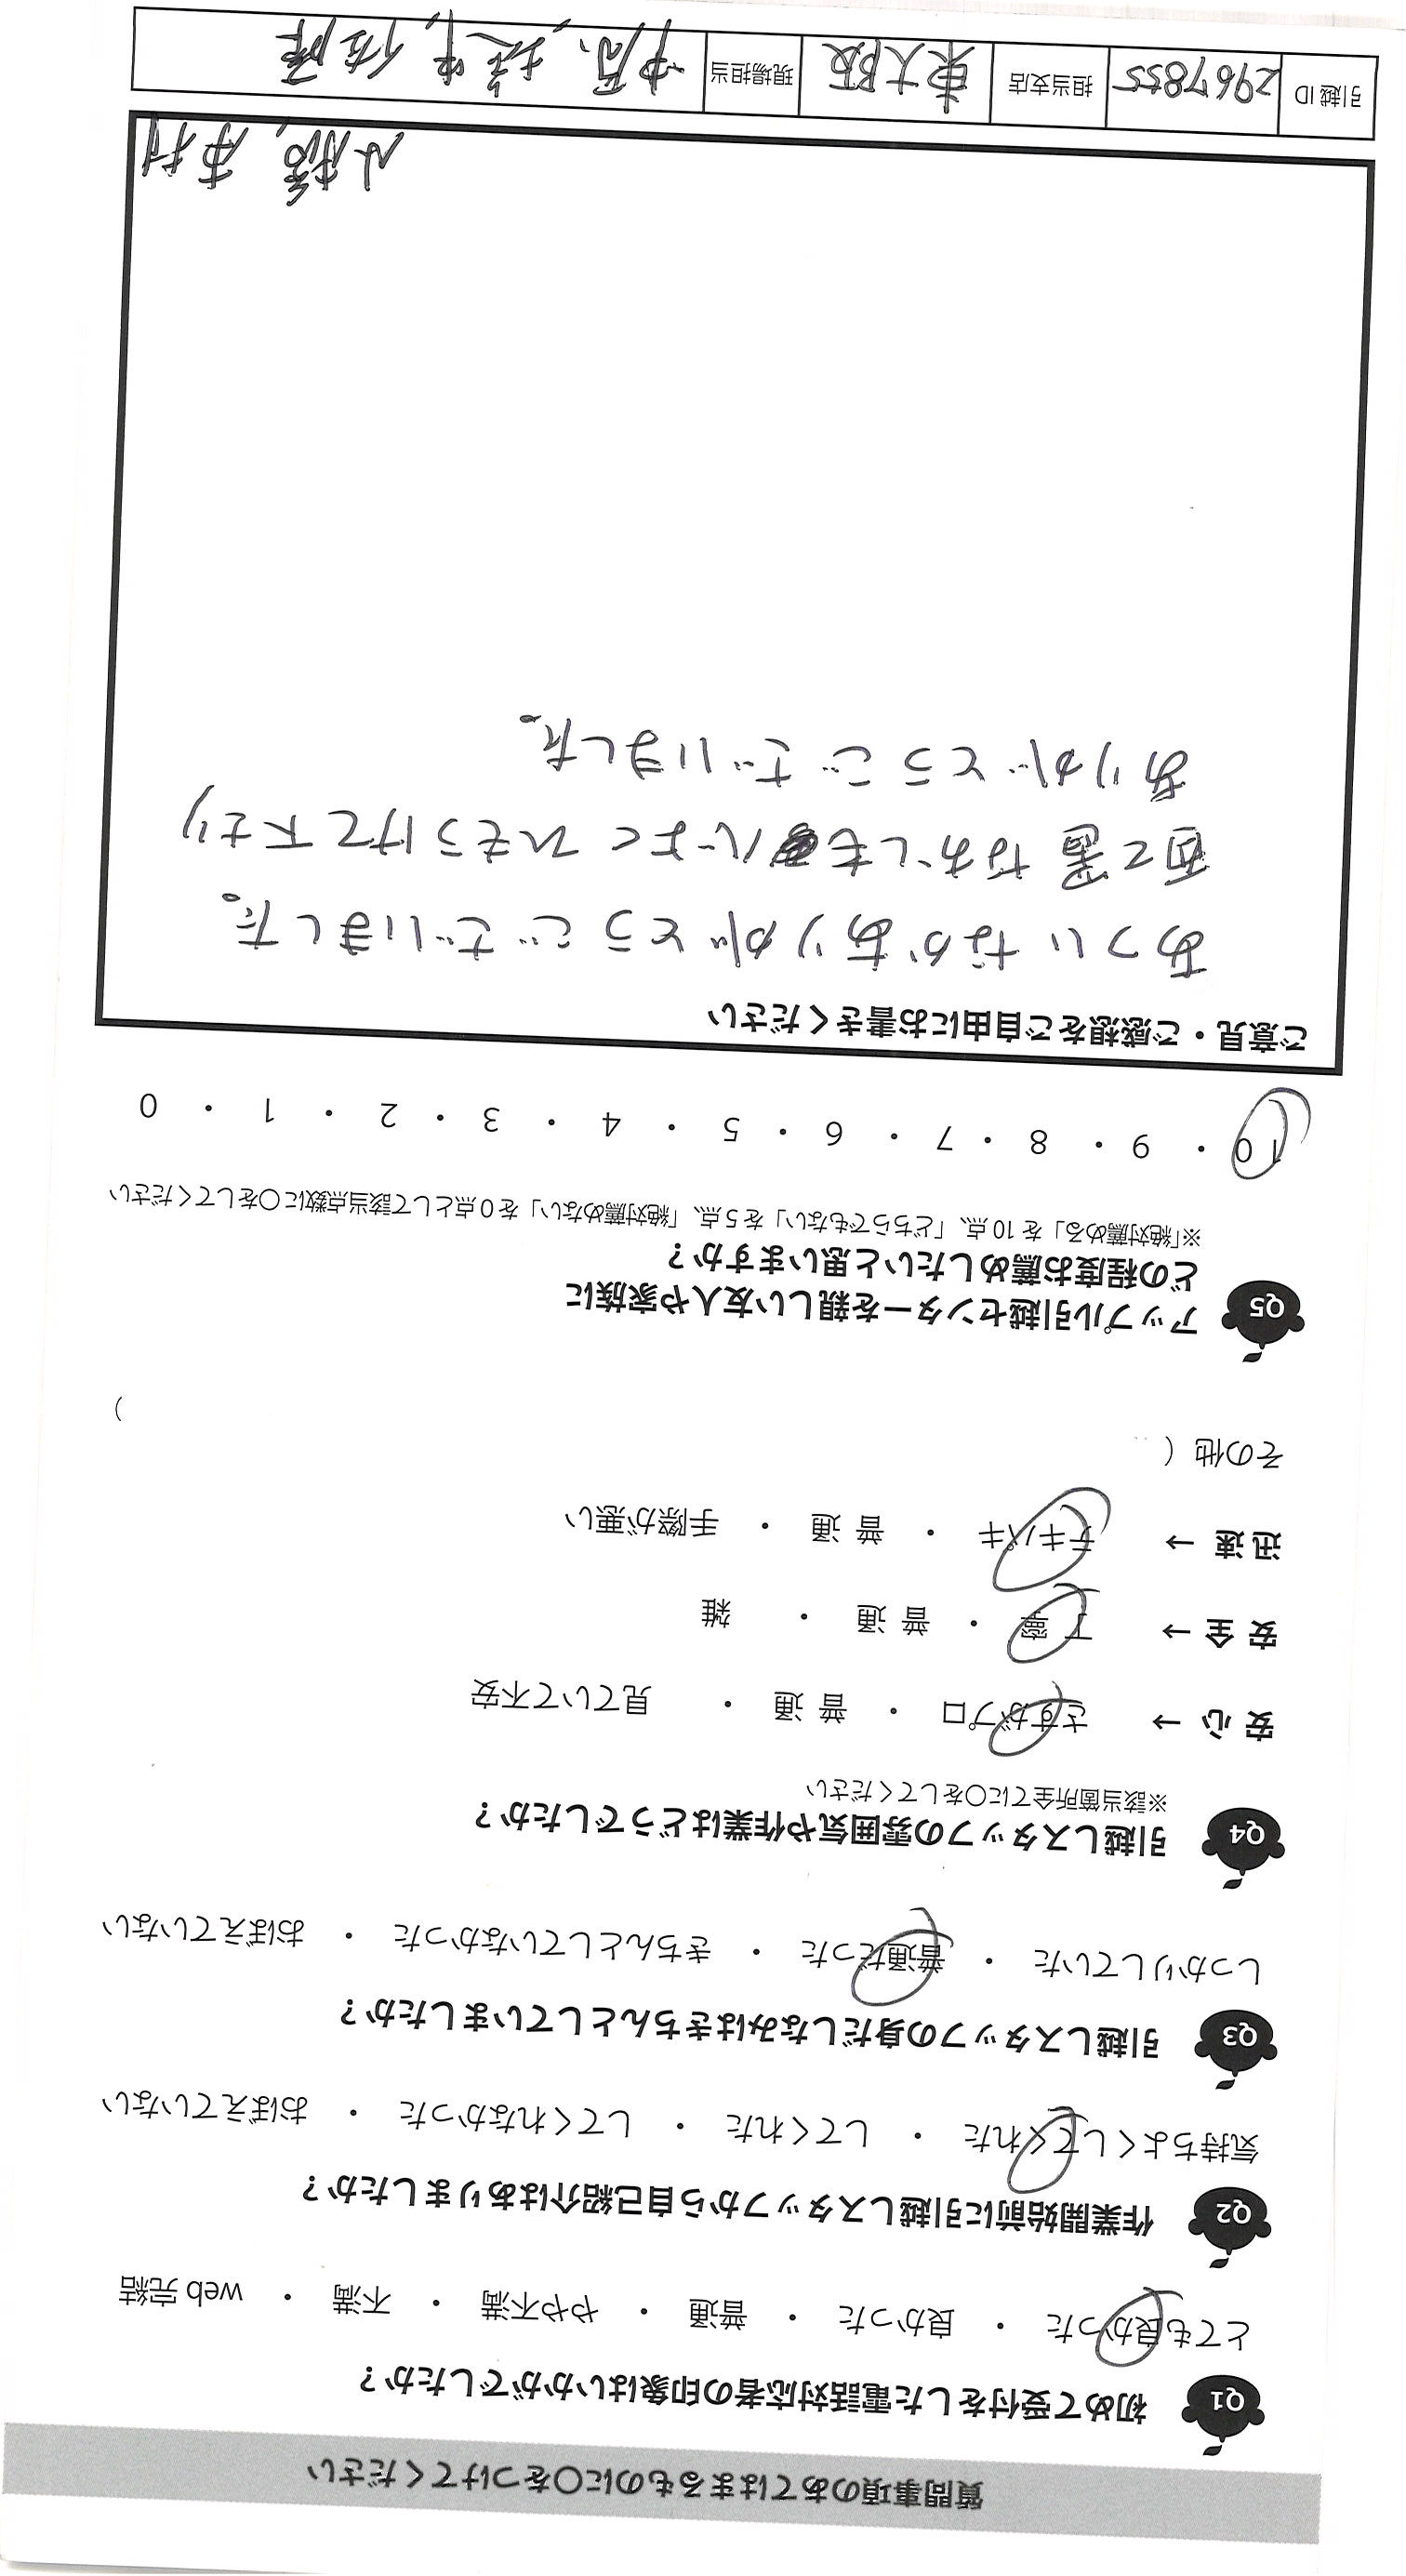 質問事項のあてはまるものに〇をつけてください
Q1 初めて受付をした電話対応者の印象はいかがでしたか？
とても良かった ・ 良かった ・ 普通 ・ やや不満 ・ 不満 ・ web完結
Q2 作業開始前に引越しスタッフから自己紹介はありましたか？
気持ちよくしてくれた ・ してくれた ・ してくれなかった ・ おぼえていない
Q3 引越しスタッフの身だしなみはきちんとしていましたか？
しっかりしていた ・ 普通だった ・ きちんとしていなかった ・ おぼえていない
Q4 引越しスタッフの雰囲気や作業はどうでしたか？
※該当箇所全てに〇をしてください
安心 → さすがプロ ・ 普通 ・ 見ていて不安
安全 → 丁寧 ・ 普通 ・ 雑
迅速 → テキパキ ・ 普通 ・ 手際が悪い
その他（ ）
Q5 アップル引越センターを親しい友人や家族に
どの程度お薦めしたいと思いますか？
※「絶対薦める」を10点、「どちらでもない」を5点、「絶対薦めない」を0点として該当点数に〇をしてください
10 ・ 9 ・ 8 ・ 7 ・ 6 ・ 5 ・ 4 ・ 3 ・ 2 ・ 1 ・ 0
ご意見・ご感想をご自由にお書きください
あついなかありがとうございました。
配置なおしも よくひきうけて下さり
ありがとうございました。
市村
引越ID 2967855 担当支店 東大阪 現場担当 中原、 佐藤